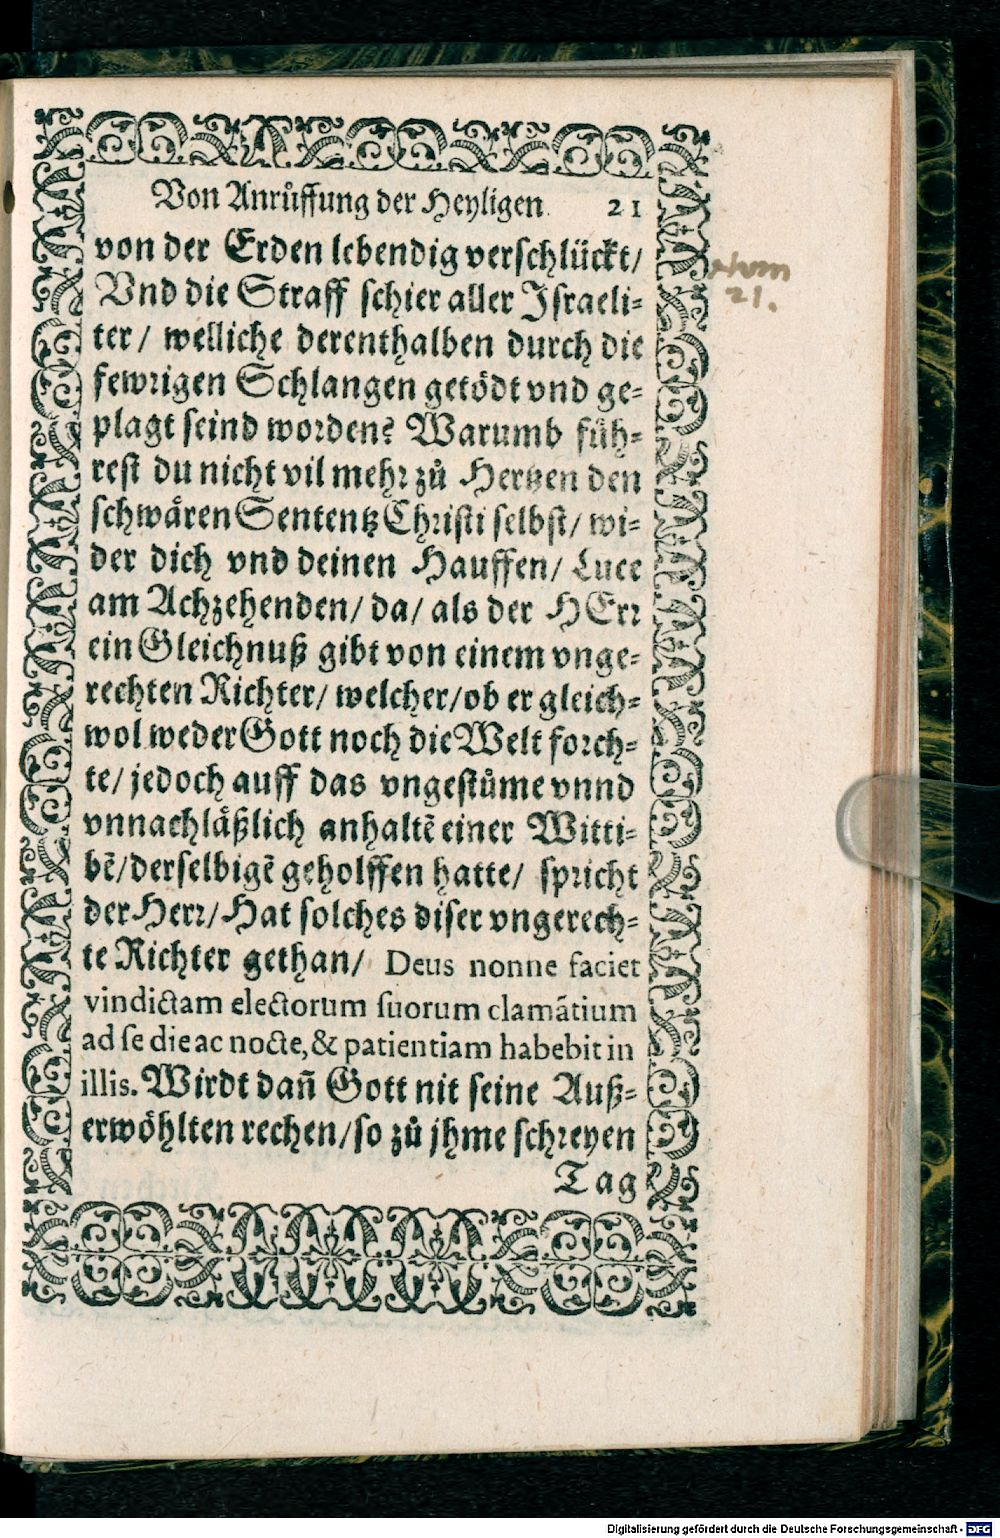 Von Anrůffung der Heyligen. 21
von der Erden lebendig verschlückt/
Vnd die Straff schier aller Israeli-
ter/ welliche derenthalben durch die
fewrigen Schlangen getödt vnd ge-
plagt seind worden? Warumb füh-
rest du nicht vil mehr zů Hertzen den
schwären Sententz Christi selbst/ wi-
der dich vnd deinen Hauffen/ Luce
am Achzehenden/ da/ als der HErr
ein Gleichnuß gibt von einem vnge-
rechten Richter/ welcher/ob er gleich-
wol weder Gott noch die Welt forch-
te/ jedoch auff das vngestüme vnnd
vnnachläßlich anhaltē einer Witti-
bē/derselbigē geholffen hatte/ spricht
der Herr/Hat solches diser vngerech-
te Richter gethan/ Deus nonne faciet
vindictam electorum suorum clamātium
ad se die ac nocte, & patientiam habebit in
illis. Wirdt dañ Gott nit seine Auß-
erwöhlten rechen/so zů jhme schreyen
Tag
Num
21.
Digitalisierung gefördert durch die Deutsche Forschungsgemeinschaft - DFG